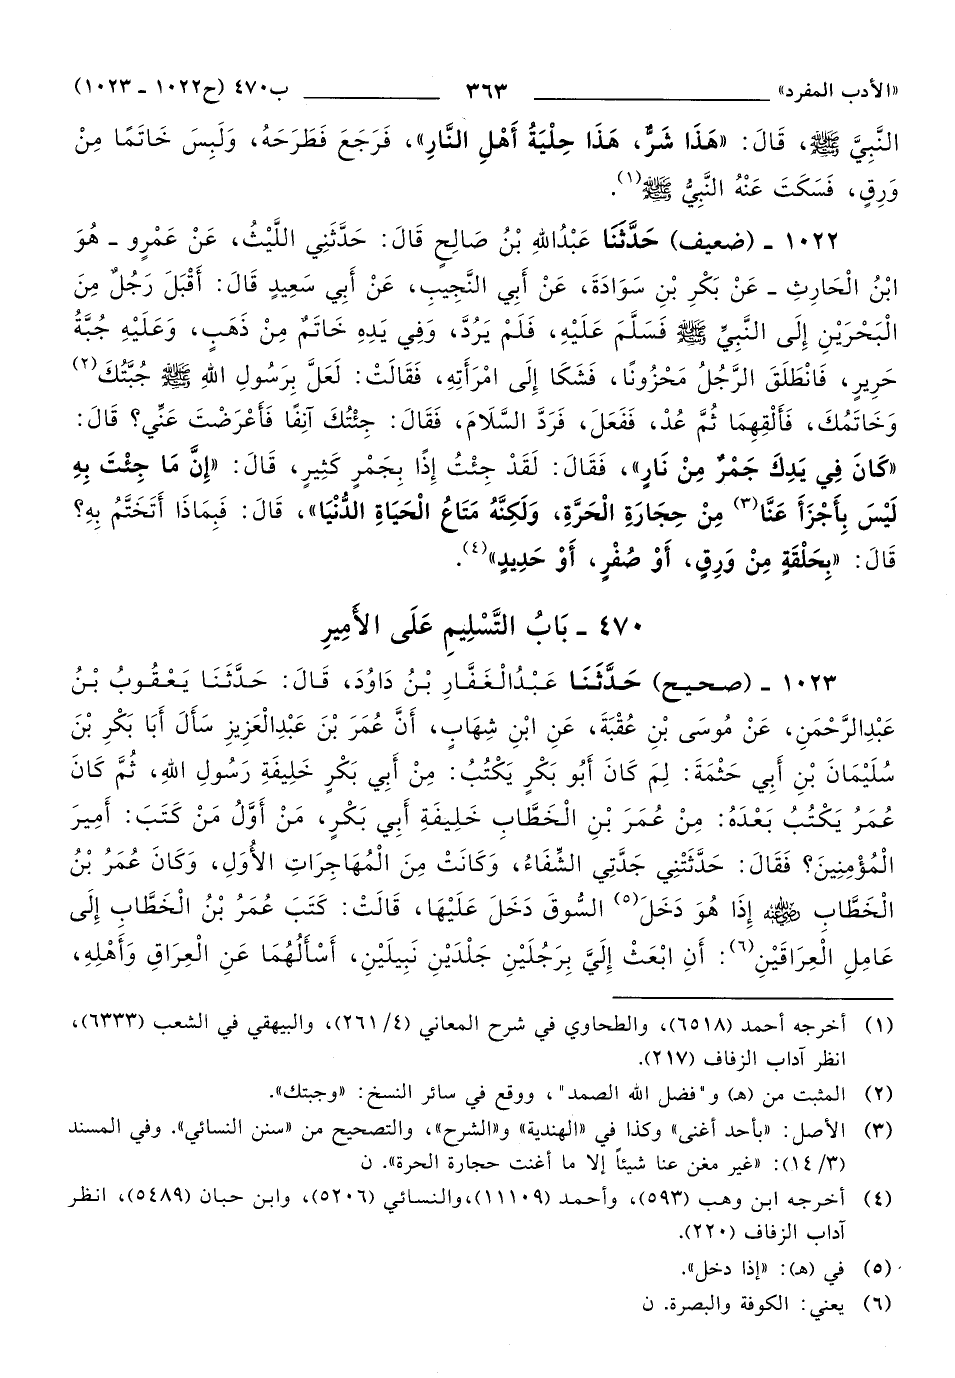 «الأدب المفرد» ٣٦٣ ب٤٧٠ (ح١٠٢٢ - ١٠٢٣)
النَّبِيَّ ﷺ، قَالَ: «هَذَا شَرٌّ، هَذَا حِلْيَةُ أَهْلِ النَّارِ»، فَرَجَعَ فَطَرَحَهُ، وَلَبِسَ خَاتَمًا مِنْ
وَرِقٍ، فَسَكَتَ عَنْهُ النَّبِيُّ ﷺ(١).
١٠٢٢ - (ضعيف) حَدَّثَنَا عَبْدُاللهِ بْنُ صَالِحٍ قَالَ: حَدَّثَنِي اللَّيْثُ، عَنْ عَمْرٍو - هُوَ
ابْنُ الْحَارِثِ - عَنْ بَكْرِ بْنِ سَوَادَةَ، عَنْ أَبِي النَّجِيبِ، عَنْ أَبِي سَعِيدٍ قَالَ: أَقْبَلَ رَجُلٌ مِنَ
الْبَحْرَيْنِ إِلَى النَّبِيِّ ﷺ فَسَلَّمَ عَلَيْهِ، فَلَمْ يَرُدَّ، وَفِي يَدِهِ خَاتَمٌ مِنْ ذَهَبٍ، وَعَلَيْهِ جُبَّةُ
حَرِيرٍ، فَانْطَلَقَ الرَّجُلُ مَحْزُونًا، فَشَكَا إِلَى امْرَأَتِهِ، فَقَالَتْ: لَعَلَّ بِرَسُولِ اللهِ ﷺ جُبَّتُكَ(٢)
وَخَاتَمُكَ، فَأَلْقِهِمَا ثُمَّ عُدْ، فَفَعَلَ، فَرَدَّ السَّلَامَ، فَقَالَ: جِئْتُكَ آنِفًا فَأَعْرَضْتَ عَنِّي؟ قَالَ:
«كَانَ فِي يَدِكَ جَمْرٌ مِنْ نَارٍ»، فَقَالَ: لَقَدْ جِئْتُ إِذًا بِجَمْرٍ كَثِيرٍ، قَالَ: «إِنَّ مَا جِئْتَ بِهِ
لَيْسَ بِأَجْزَأَ عَنَّا(٣) مِنْ حِجَارَةِ الْحَرَّةِ، وَلَكِنَّهُ مَتَاعُ الْحَيَاةِ الدُّنْيَا»، قَالَ: فَبِمَاذَا أَتَخَتَّمُ بِهِ؟
قَالَ: «بِحَلْقَةٍ مِنْ وَرِقٍ، أَوْ صُفْرٍ، أَوْ حَدِيدٍ»(٤).
٤٧٠ - بَابُ التَّسْلِيمِ عَلَى الأَمِيرِ
١٠٢٣ - (صحيح) حَدَّثَنَا عَبْدُالْغَفَّارِ بْنُ دَاوُدَ، قَالَ: حَدَّثَنَا يَعْقُوبُ بْنُ
عَبْدِالرَّحْمَنِ، عَنْ مُوسَى بْنِ عُقْبَةَ، عَنِ ابْنِ شِهَابٍ، أَنَّ عُمَرَ بْنَ عَبْدِالْعَزِيزِ سَأَلَ أَبَا بَكْرِ بْنَ
سُلَيْمَانَ بْنِ أَبِي حَثْمَةَ: لِمَ كَانَ أَبُو بَكْرٍ يَكْتُبُ: مِنْ أَبِي بَكْرٍ خَلِيفَةِ رَسُولِ اللهِ، ثُمَّ كَانَ
عُمَرُ يَكْتُبُ بَعْدَهُ: مِنْ عُمَرَ بْنِ الْخَطَّابِ خَلِيفَةِ أَبِي بَكْرٍ، مَنْ أَوَّلُ مَنْ كَتَبَ: أَمِيرَ
الْمُؤْمِنِينَ؟ فَقَالَ: حَدَّثَتْنِي جَدَّتِي الشِّفَاءُ، وَكَانَتْ مِنَ الْمُهَاجِرَاتِ الأُوَلِ، وَكَانَ عُمَرُ بْنُ
الْخَطَّابِ ﵁ إِذَا هُوَ دَخَلَ(٥) السُّوقَ دَخَلَ عَلَيْهَا، قَالَتْ: كَتَبَ عُمَرُ بْنُ الْخَطَّابِ إِلَى
عَامِلِ الْعِرَاقَيْنِ(٦): أَنِ ابْعَثْ إِلَيَّ بِرَجُلَيْنِ جَلْدَيْنِ نَبِيلَيْنِ، أَسْأَلُهُمَا عَنِ الْعِرَاقِ وَأَهْلِهِ،
(١) أخرجه أحمد (٦٥١٨)، والطحاوي في شرح المعاني (٤/ ٢٦١)، والبيهقي في الشعب (٦٣٣٣)،
انظر آداب الزفاف (٢١٧).
(٢) المثبت من (هـ) و"فضل الله الصمد"، ووقع في سائر النسخ: «وجبتك».
(٣) الأصل: «بأحد أغنى» وكذا في «الهندية» و«الشرح»، والتصحيح من «سنن النسائي». وفي المسند
(٣/ ١٤): «غير مغن عنا شيئاً إلا ما أغنت حجارة الحرة». ن
(٤) أخرجه ابن وهب (٥٩٣)، وأحمد (١١١٠٩)،والنسائي (٥٢٠٦)، وابن حبان (٥٤٨٩)، انظر
آداب الزفاف (٢٢٠).
(٥) في (هـ): «إذا دخل».
(٦) يعني: الكوفة والبصرة. ن